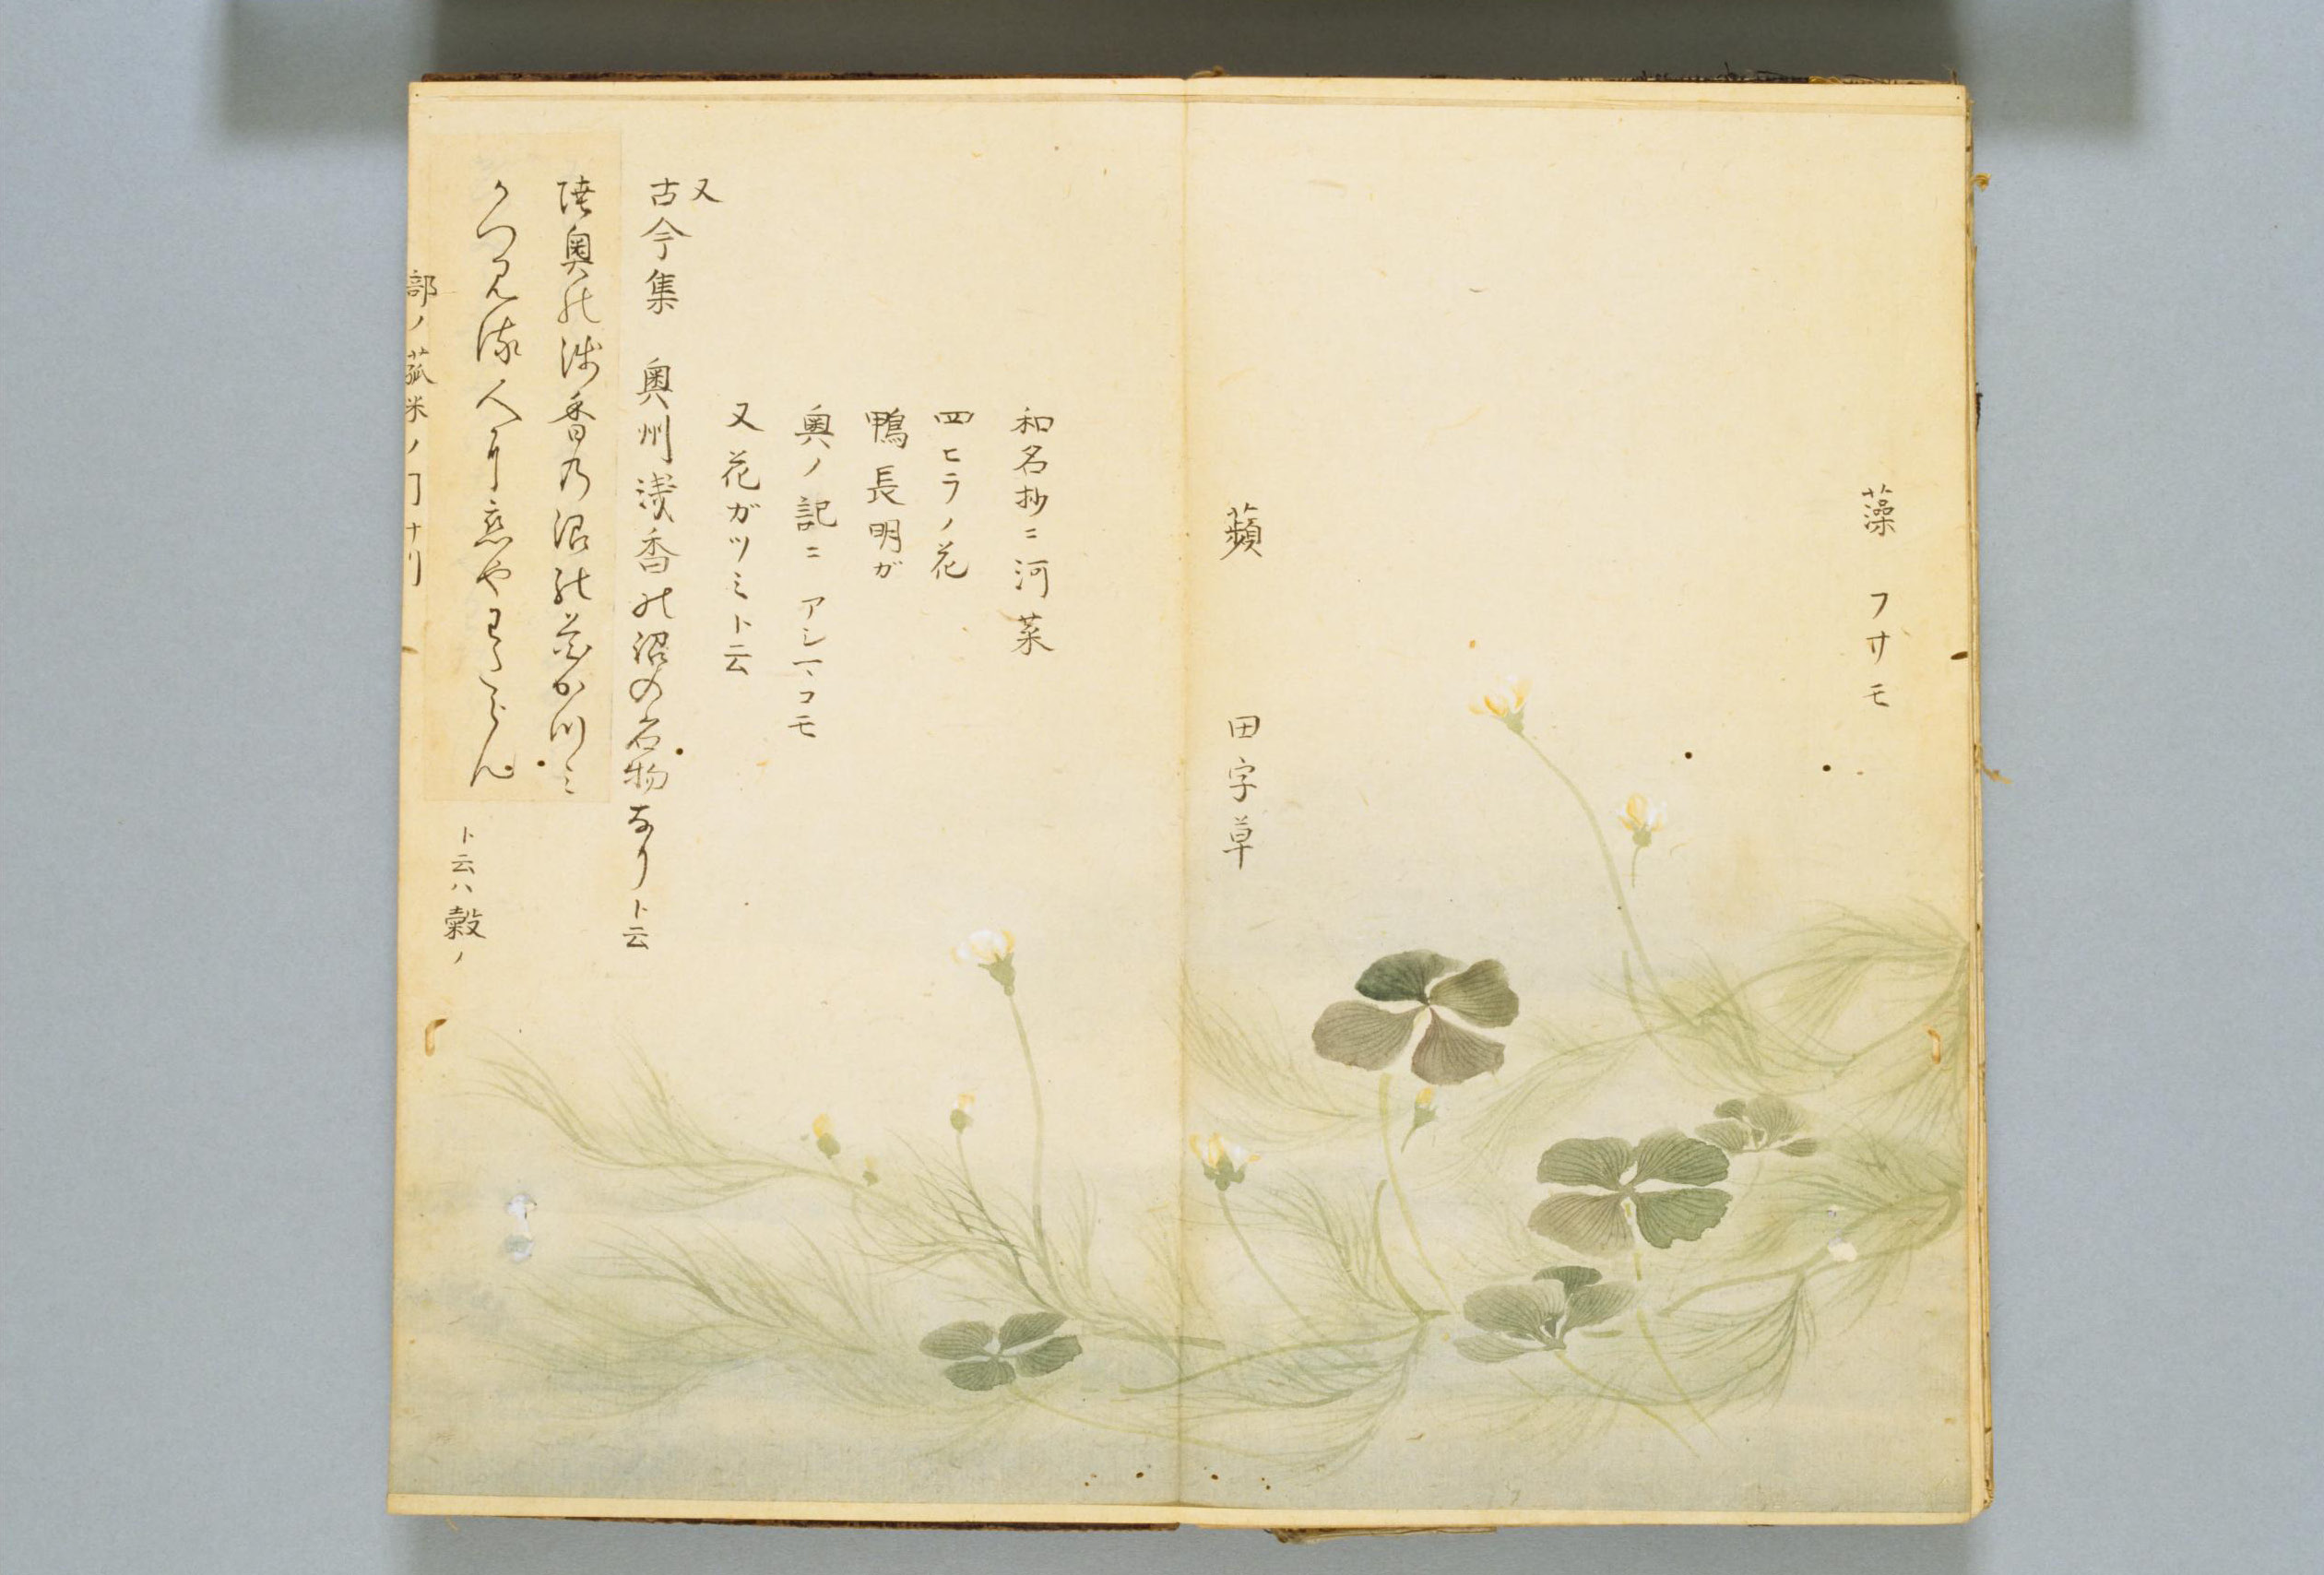 藻 フサモ
蘋 田字草
和名抄ニ河菜
四ヒラノ花
鴨長明ガ
奥ノ記ニ アシマコモ
又花ガツミト云
又
古今集 奥州淺香の沼の名物なりト云
陸奥の淺香乃沼の花か川ミ
かつ見る人に恋やわたらん
ト云ハ穀ノ
部ノ菰米ノ丁ナリ